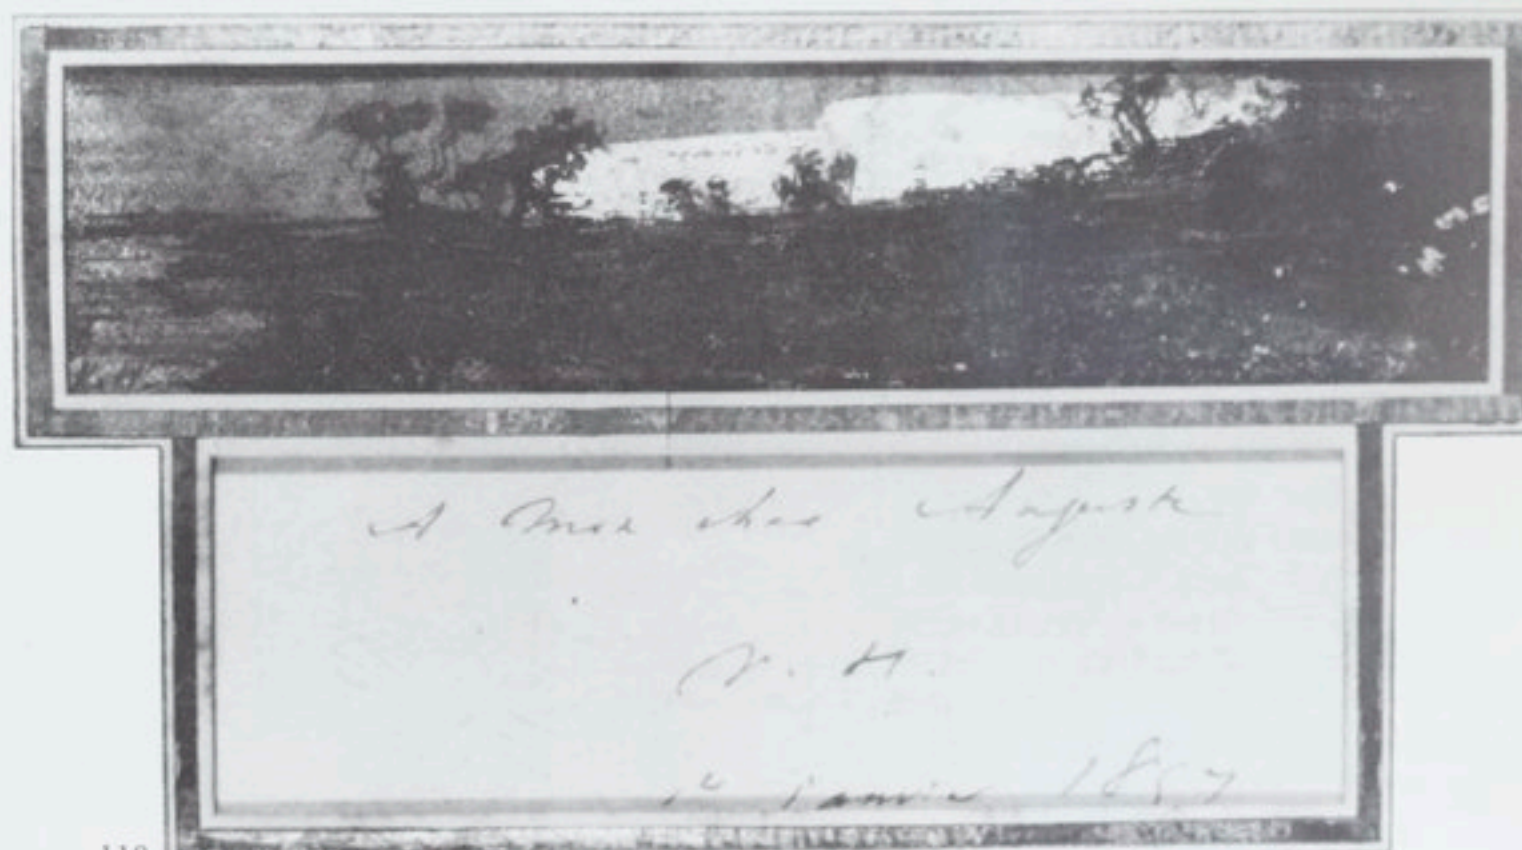 A mon cher Auguste
V. H.
1er Janvier 1857